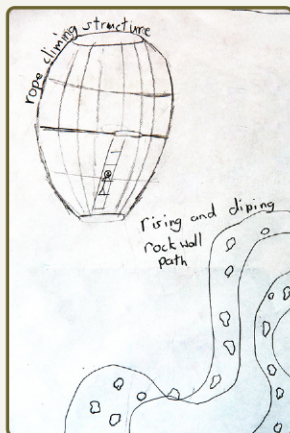 rope climing structure
rising and diping
rock wall
path